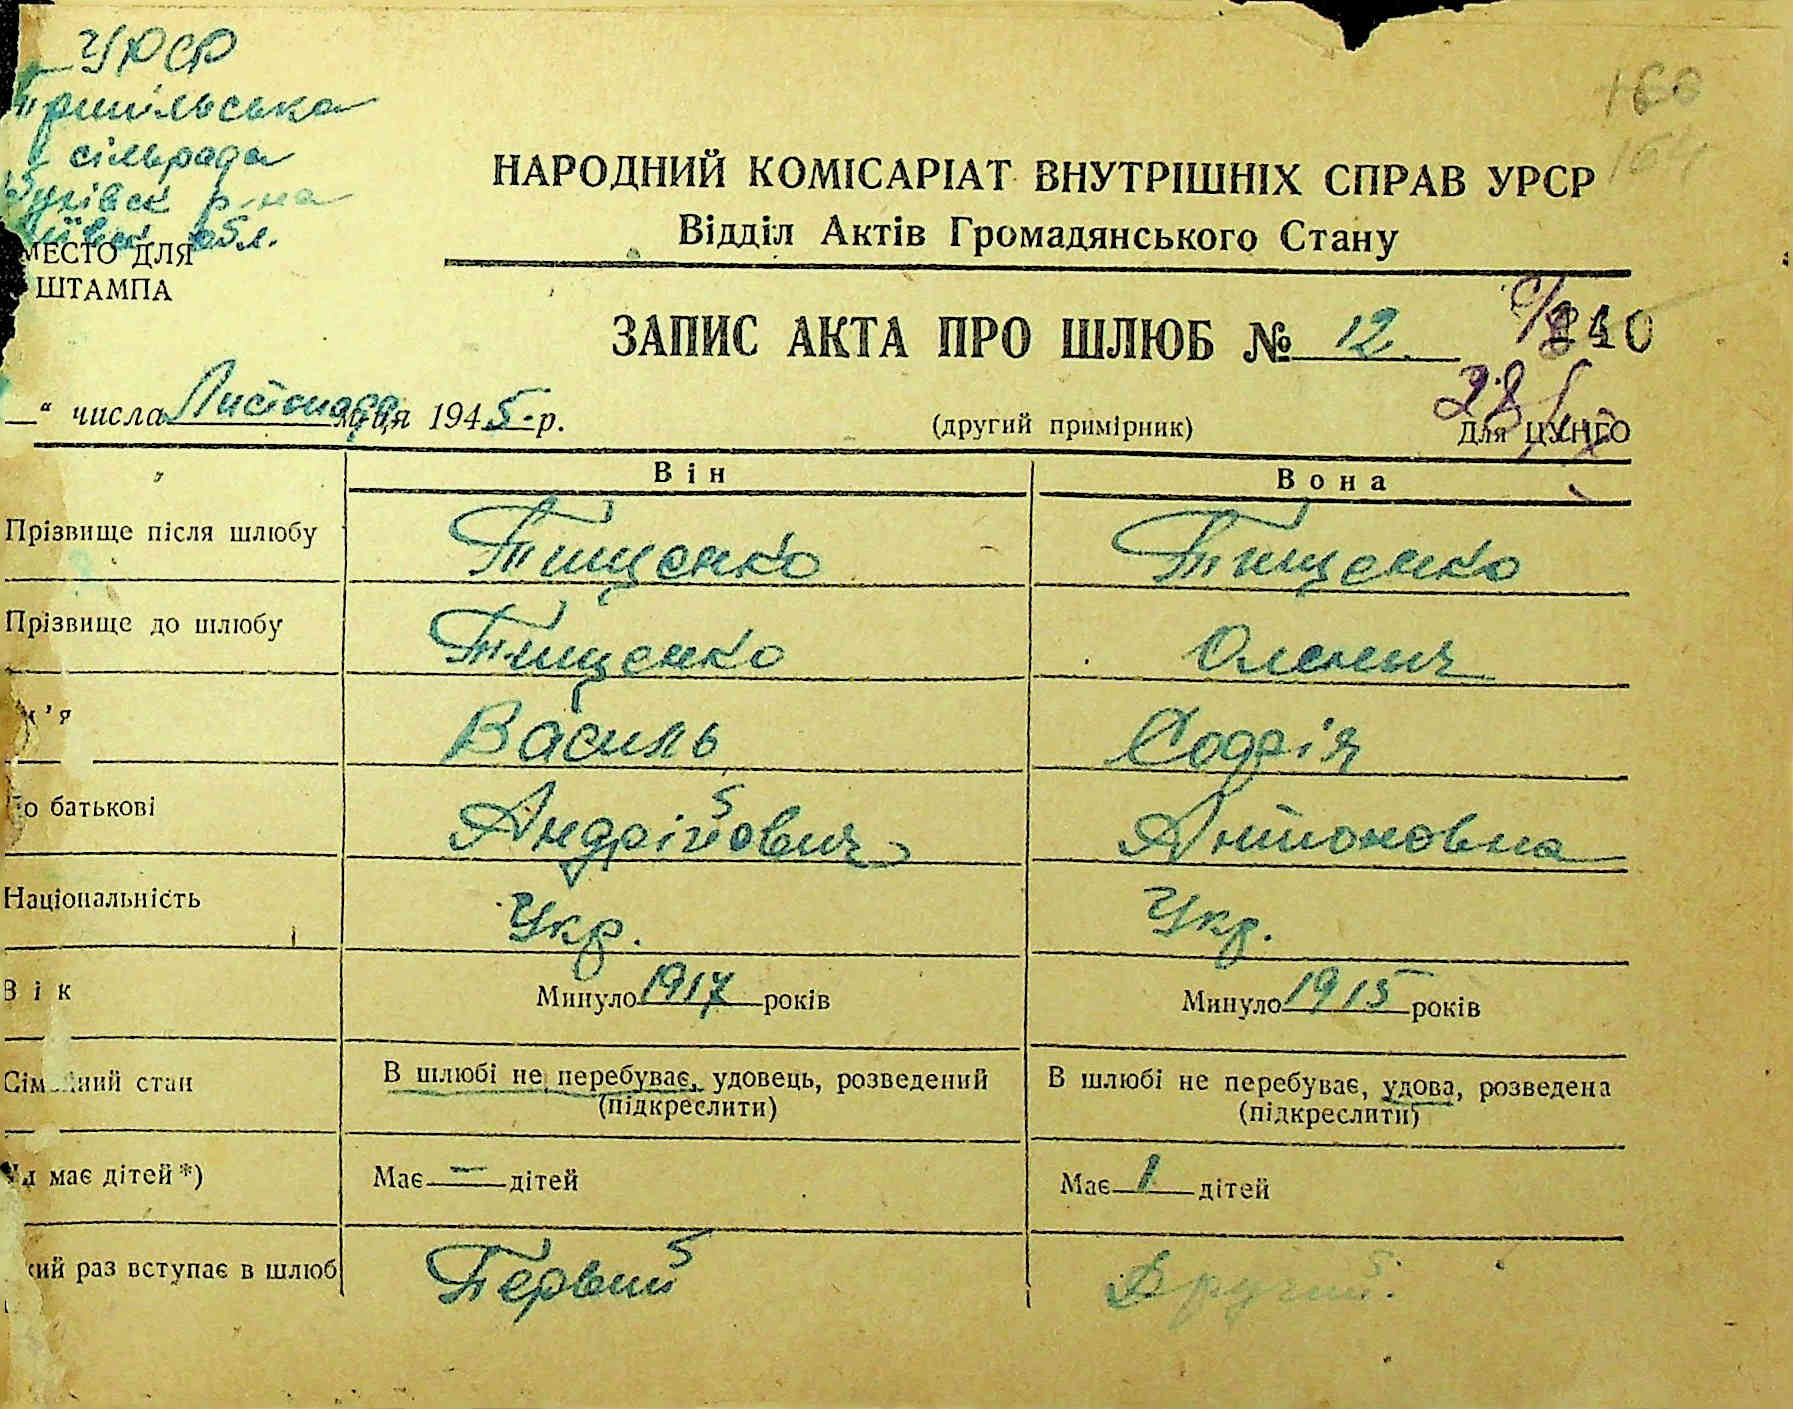 УРСР
Трипільська
сільрада
р-на
обл.
МЕСТО ДЛЯ
ШТАМПА
160
164
НАРОДНИЙ КОМІСАРІАТ ВНУТРІШНІХ СПРАВ УРСР
Відділ Актів Громадянського Стану
ЗАПИС АКТА ПРО ШЛЮБ № 12.
“ числа Листопада м-ця 1945-р.
(другий примірник)
Для ЦУНГО
Він Вона
Прізвище після шлюбу Тищенко Тищенко
Прізвище до шлюбу Тищенко
м'я Василь Софія
По батькові Андрійович Антоновна
Національність Укр. Укр.
Вік Минуло 1917 років Минуло 1915 років
Сімейний стан В шлюбі не перебуває, удовець, розведений В шлюбі не перебуває, удова, розведена
(підкреслити) (підкреслити)
Чи має дітей*) Має — дітей Має 1 дітей
кий раз вступає в шлюб Первий Другий.